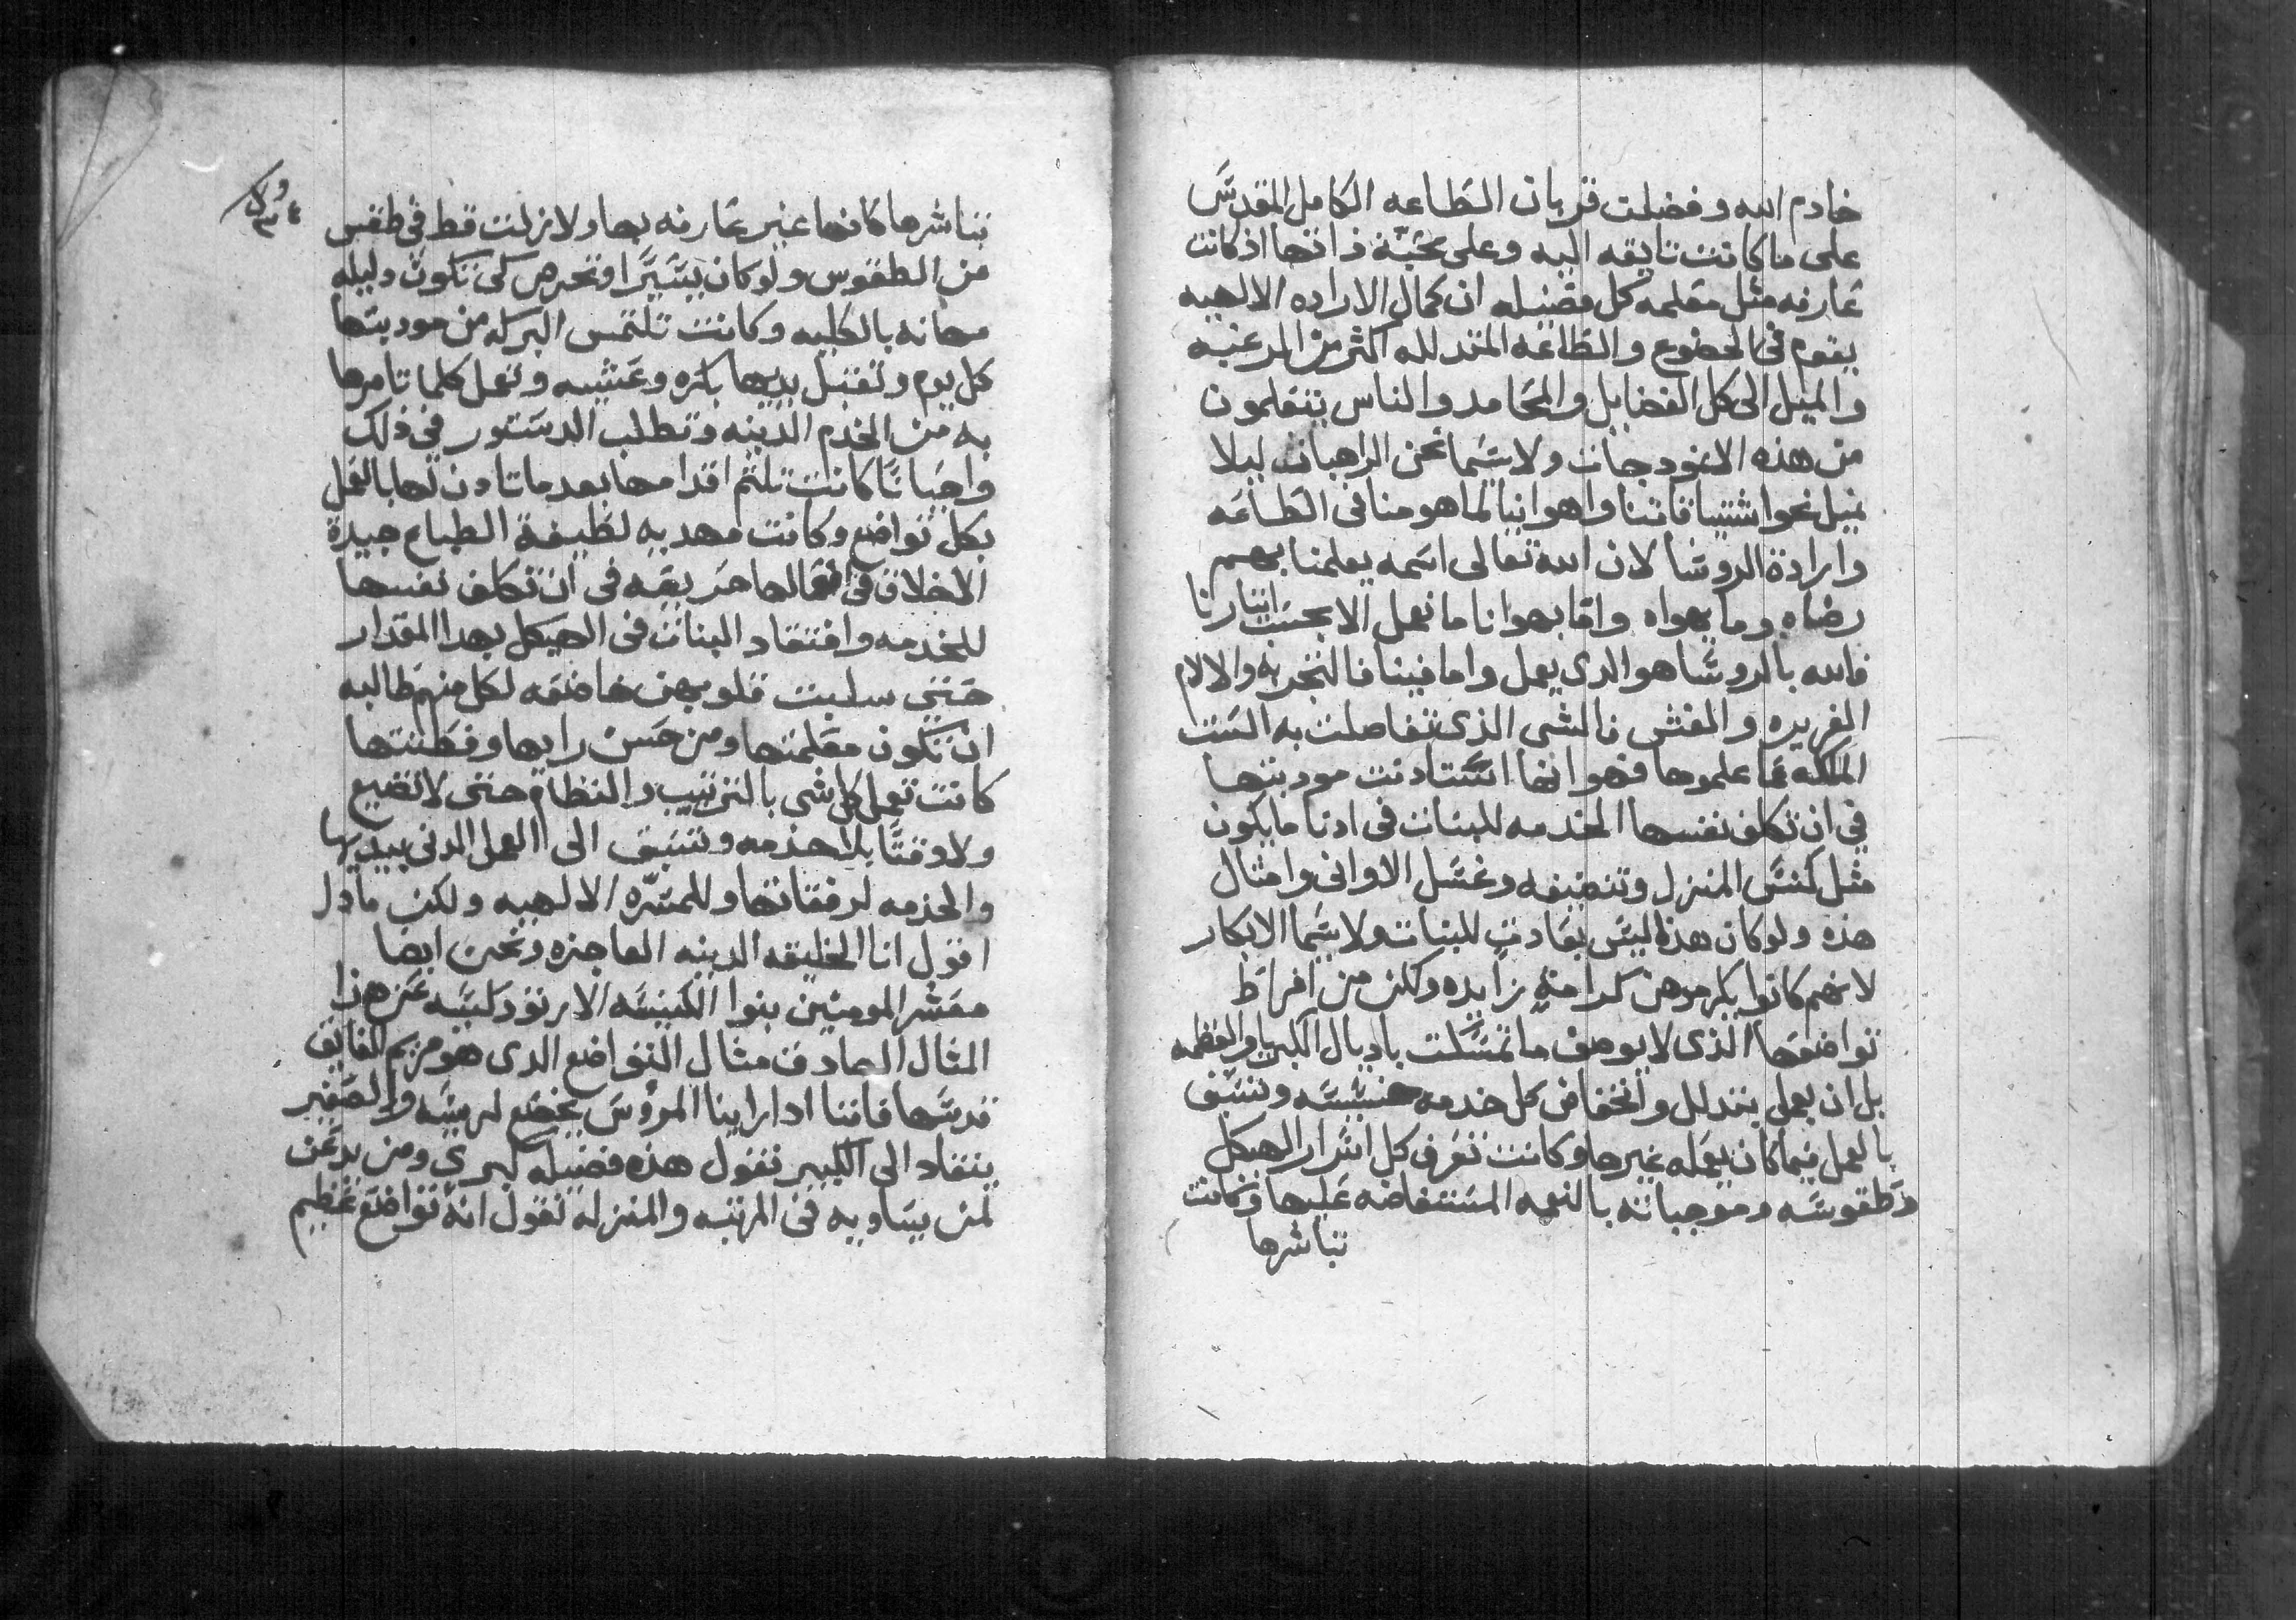 خادم الله وفضلت قربان الطاعه الكامل المقدس
على ما كانت تايقه اليه وعلى محبة ذاتها اذ كانت
عارفه مثل معلمه كل فضيله ان كمال الاراده الالهيه
يقوم فى الخضوع والطاعه المتدلله اكثر من المرغبه
والميل الى كل الفضايل والمحامد والناس يتعلمون
من هذه الانمودجات ولا سيما نحن الراهبات ليلا
نميل نحو اشتياقاتنا واهوانيا لما هو منافى الطاعه
وارادة الروسا لان الله تعالى اسمه يعلمنا بهم
رضاه وما يهواه واما بهوانا ما نعمل الا بحسب اختيارنا
فالله بالروسا هو الدى يعمل واما فينا فالتجربه والالام
الغريره والغش فالشى الذى تفاضلت به الست
الملكه عما علموها فهو انها استادنت مودبتها
في ان تكلف نفسها الخدمه للبنات فى ادنا ما يكون
مثل كنس المنزل وتنضيفه وغسل الاوانى وامثال
هذه ولو كان هذا ليس بعادت للبنات ولا سيما الابكار
لانهم كانوا يكرموهن كرامة زايده ولكن من افراط
تواضعها الذى لا يوصف ما تمسكت باديال الكبريا والعظمه
بل ان يعمل بتدلل وانخفاض كل خدمه خسيسه وتسبق
بالعمل فيما كان يعمله غيرها وكانت تعرف كل اسرار الهيكل
وطقوسه وموجباته بالنعمه المستفاضه عليها وكانت
تباشرها
تباشرها كانها غير عارفه بها ولا زلت قط في طقس
من الطقوس ولو كان يسيرا وتحرص لكى تكون دليله
مهانه بالكليه وكانت تلتمس البركه من مودبتها
كل يوم وتقبل يديها بكره وعشيه وتعمل كلما تامرها
به من الخدم الدنيه وتطلب الدستور في ذلك
واحيانا كانت تلثم اقدامها بعد ما تادن لها بالعمل
بكل تواضع وكانت مهديه لطيفة الطباع جيدة
الاخلاق فى افعالها حريصه فى ان تكلف نفسها
للخدمه وافتقاد البنات فى الهيكل بهدا المقدار
حتى سلبت قلوبهن خاضعه لكل منهم طالبه
ان تكون معلمتها ومن حسن رايها وفطنتها
كانت تعمل كل شى بالترتيب والنظام حتى لا تضيع
ولا وقتا بلا خدمه وتسبق الى العمل الدنى بيديها
والخدمه لرفقاتها وللمسره الالهيه ولكن مادا
اقول انا الخليقه الدنيه العاجزه ونحن ايضا
معشر المومنين بنوا الكنيسه الارتودكسيه عن هذا
المثال الصادق مثال التواضع الدى هو مريم الفايق
قدسها فاننا ادا راينا المروس يخضع لريسه والصغير
ينقاد الى الكبير نقول هذه فضيله كبرى ومن يدعن
لمن يساويه فى المرتبه والمنزله نقول انه تواضع عظيم